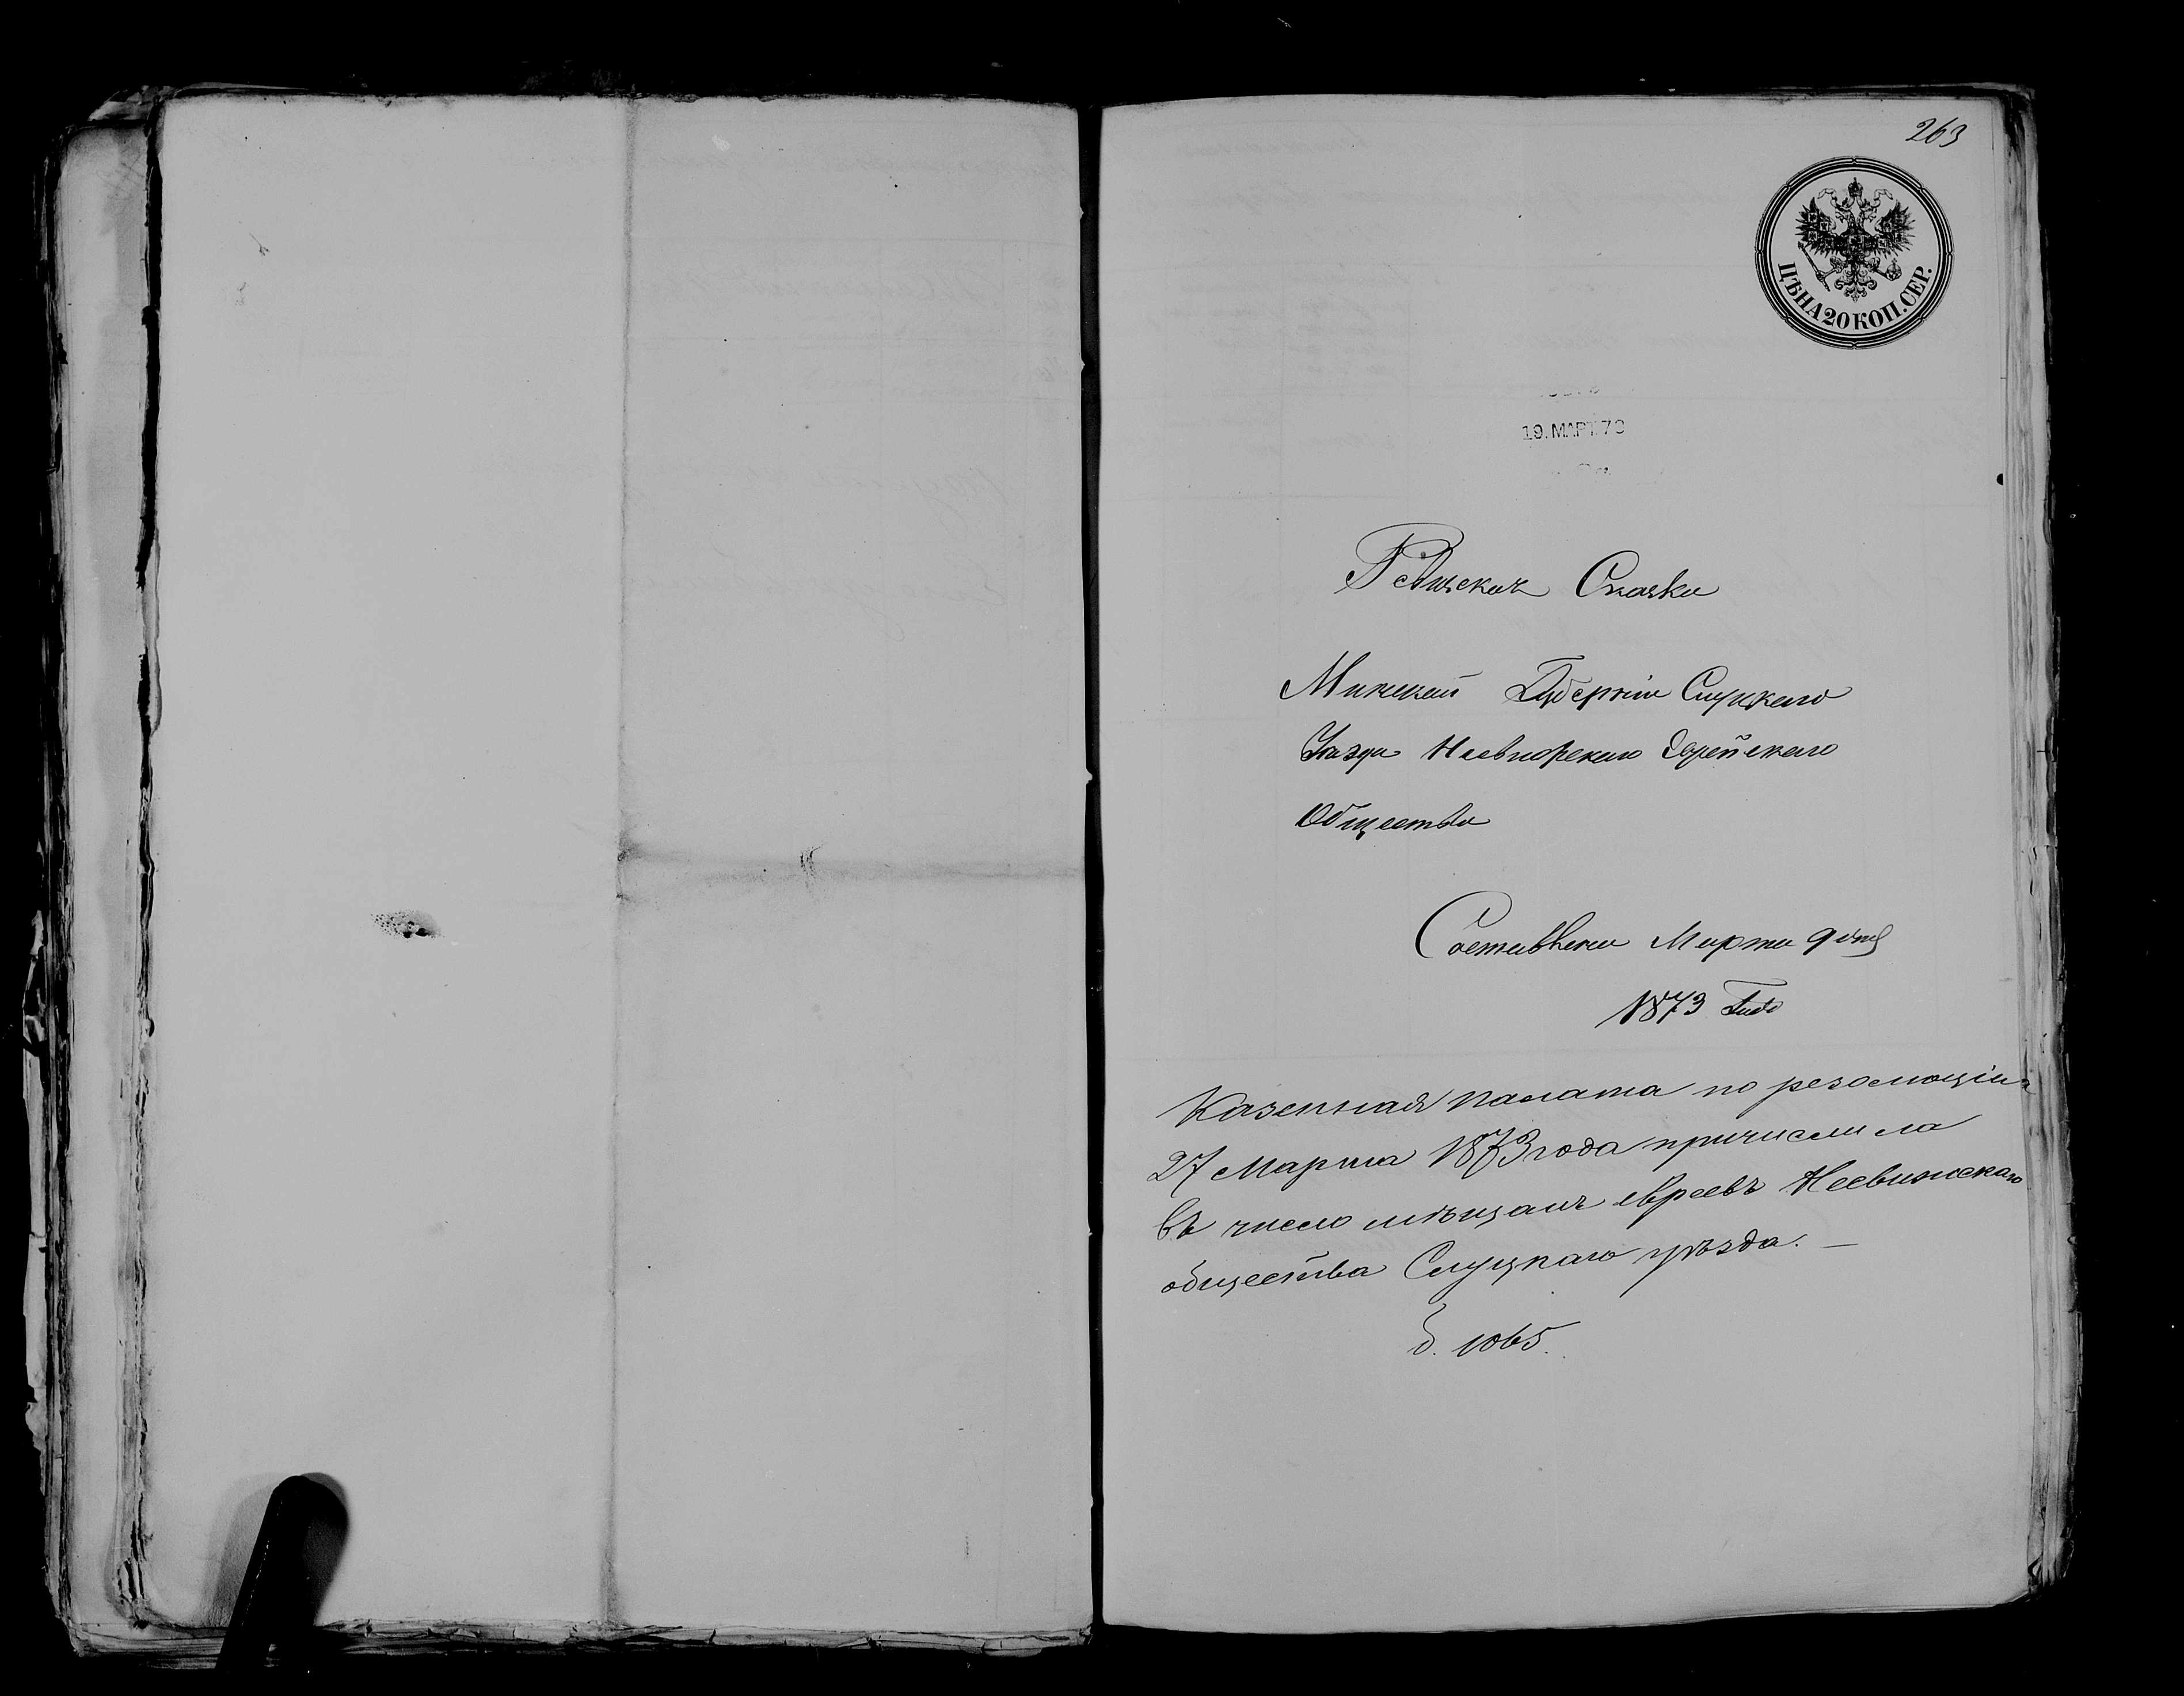 263
ЦѢНА 20 КОП. СЕР.
19. МАРТ. 73
Ревизская Сказка
Минской Губерніи Слуцкаго
Уѣзда Несвижскаго Еврейскаго
Общества
Составлена Марта 9 дня
1873 Года
Казенная палата по резолюціи
27 Марта 1873 года причислила
въ число мѣщанъ евреевъ Несвижскаго
общества Слуцкаго уѣзда. —
д. 1065.